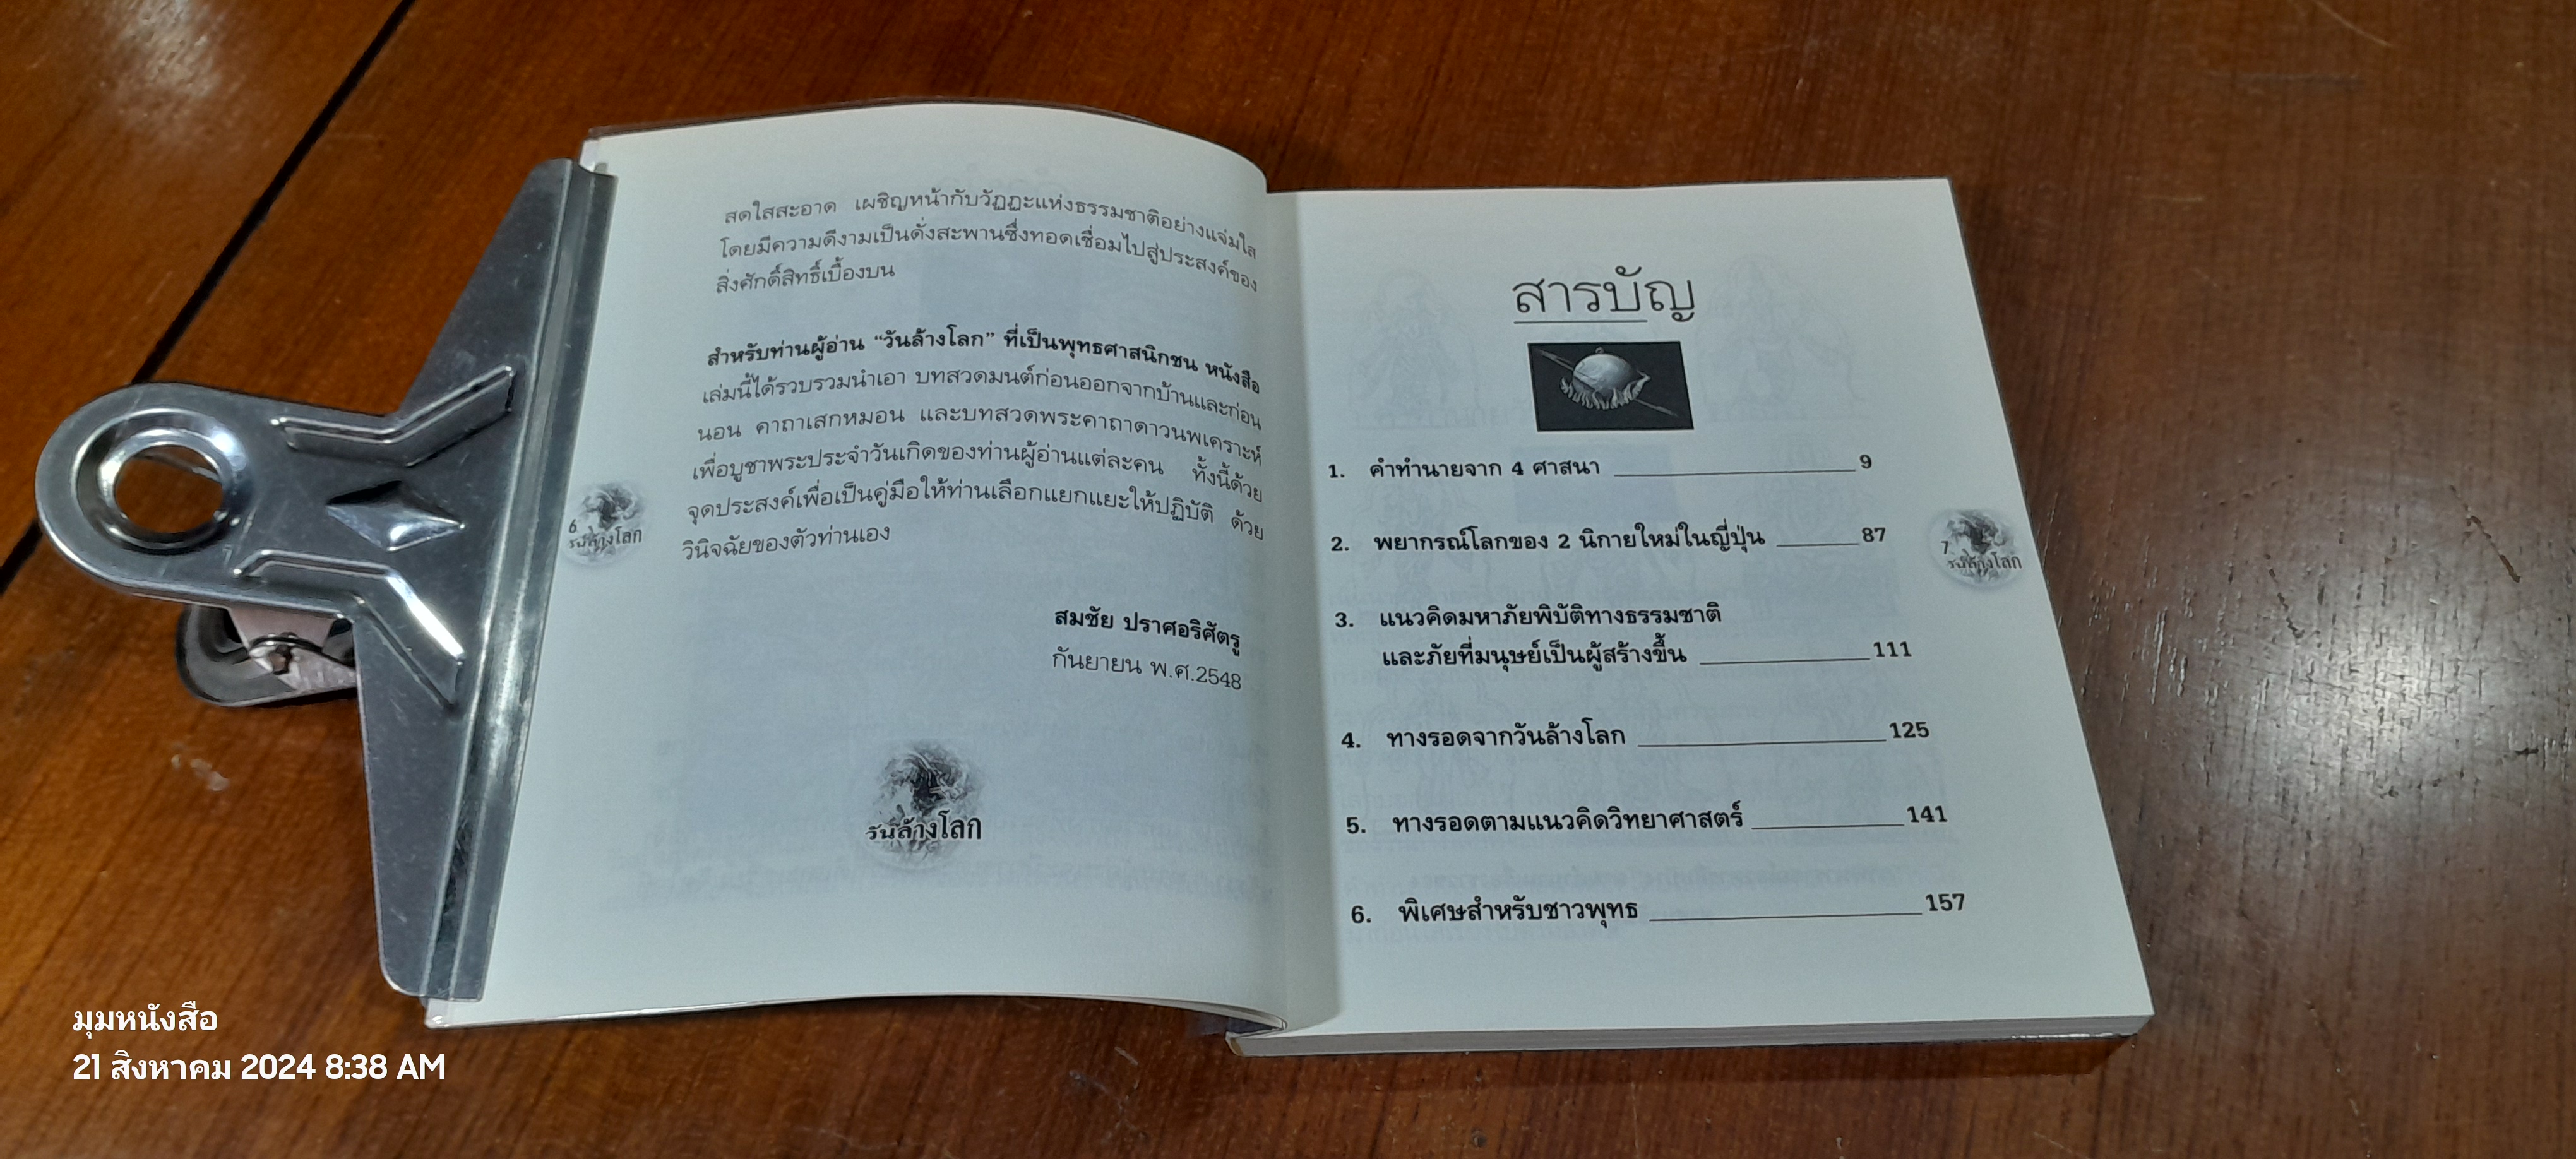 สดใสสะอาด เผชิญหน้ากับวัฏฏะแห่งธรรมชาติอย่างแจ่มใส
โดยมีความดีงามเป็นดั่งสะพานซึ่งทอดเชื่อมไปสู่ประสงค์ของ
สิ่งศักดิ์สิทธิ์เบื้องบน
สำหรับท่านผู้อ่าน “วันล้างโลก” ที่เป็นพุทธศาสนิกชน หนังสือ
เล่มนี้ได้รวบรวมนำเอา บทสวดมนต์ก่อนออกจากบ้านและก่อน
นอน คาถาเสกหมอน และบทสวดพระคาถาดาวนพเคราะห์
เพื่อบูชาพระประจำวันเกิดของท่านผู้อ่านแต่ละคน ทั้งนี้ด้วย
จุดประสงค์เพื่อเป็นคู่มือให้ท่านเลือกแยกแยะให้ปฏิบัติ ด้วย
วินิจฉัยของตัวท่านเอง
สมชัย ปราศอริศัตรู
กันยายน พ.ศ.2548
วันล้างโลก
6
วันล้างโลก
สารบัญ
1. คำทำนายจาก 4 ศาสนา 9
2. พยากรณ์โลกของ 2 นิกายใหม่ในญี่ปุ่น 87
3. แนวคิดมหาภัยพิบัติทางธรรมชาติ
และภัยที่มนุษย์เป็นผู้สร้างขึ้น 111
4. ทางรอดจากวันล้างโลก 125
5. ทางรอดตามแนวคิดวิทยาศาสตร์ 141
6. พิเศษสำหรับชาวพุทธ 157
7
วันล้างโลก
มุมหนังสือ
21 สิงหาคม 2024 8:38 AM